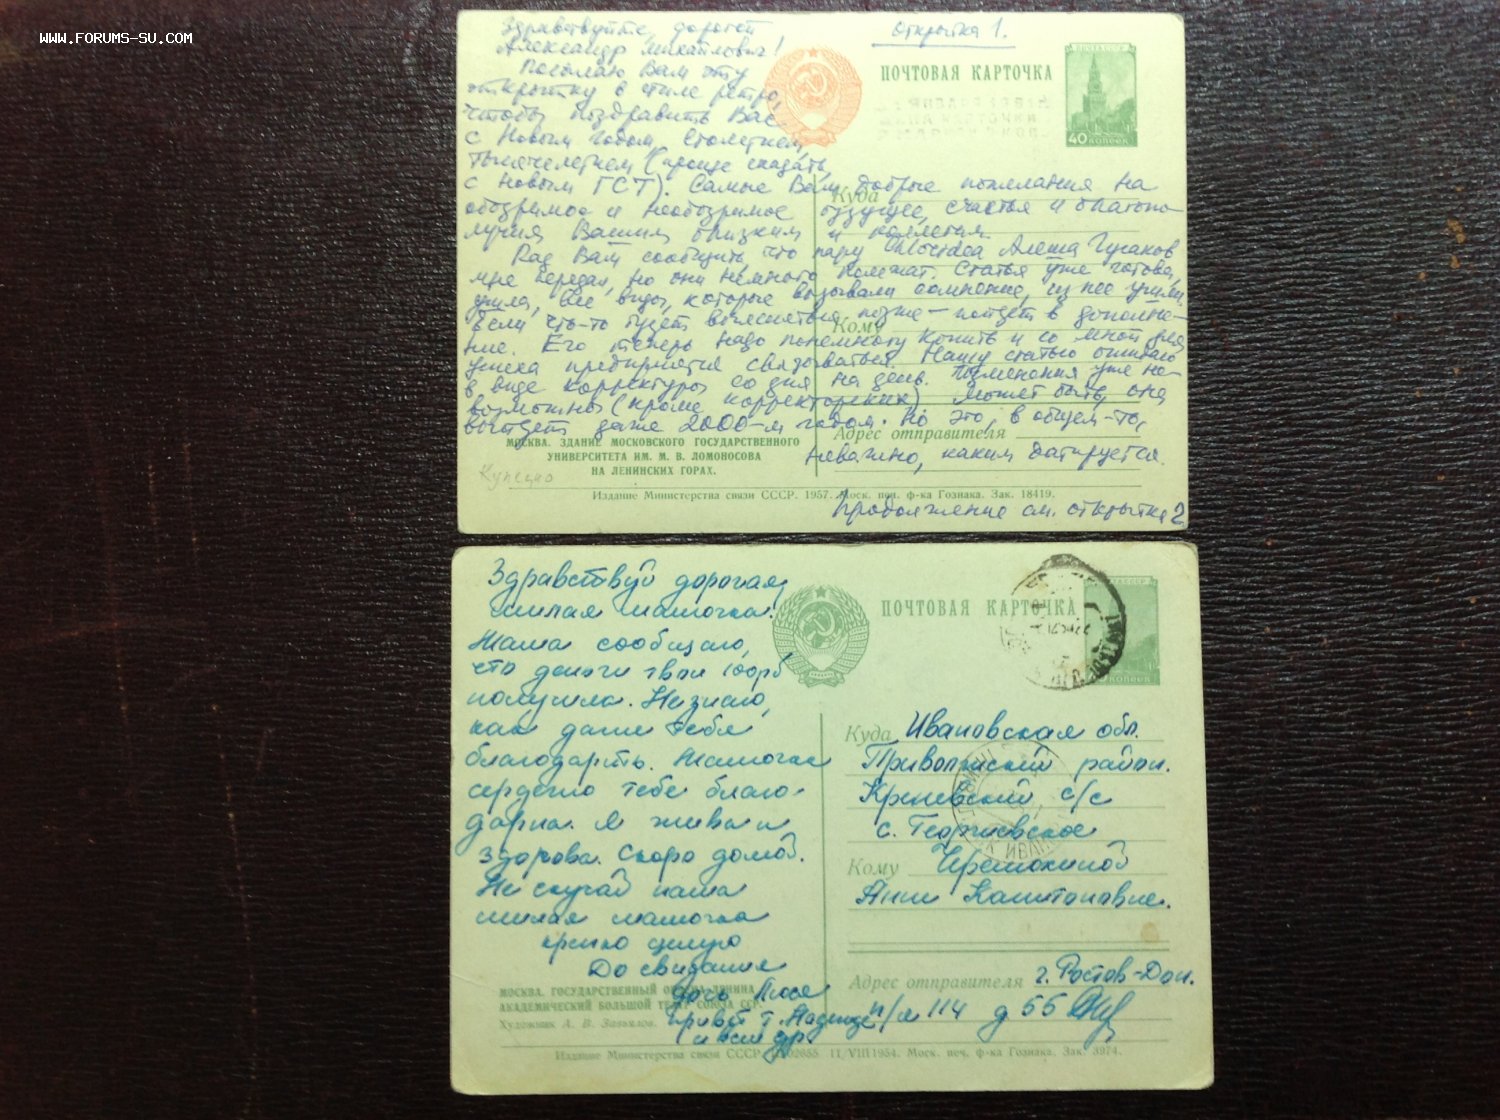 www.forums-su.com
Здравствуйте, дорогой
Александр Михайлович!
Открытка 1.
Посылаю Вам эту
открытку в стиле ретро,
чтобы поздравить Вас
с Новым Годом, Столетием,
Тысячелетием (проще сказать,
с новым ГСТ). Самые Вам добрые пожелания на
обозримое и необозримое будущее, счастья и благопо-
лучия Вашим близким и коллегам.
Рад Вам сообщить, что пару Алеша Гусаков
мне передал, но они немного полежат. Статья уже готова,
ушла, все виды, которые вызывали сомнение, из нее
Если что-то будет выясняться позже — пойдет в дополне-
ние. Его теперь надо понемногу копить и со мной для
успеха предприятия связываться. Нашу статью ожидаю
в виде корректуры со дня на день. Изменения уже не-
возможны (кроме корректорских). Может быть, она
выйдет даже 2000-м годом. Но это, в общем-то,
неважно, каким датируется.
Продолжение см. открытка 2
ПОЧТОВАЯ КАРТОЧКА
ПОЧТА СССР
40 КОПЕЕК
Куда
Кому
Адрес отправителя
МОСКВА. ЗДАНИЕ МОСКОВСКОГО ГОСУДАРСТВЕННОГО
УНИВЕРСИТЕТА ИМ. М. В. ЛОМОНОСОВА
НА ЛЕНИНСКИХ ГОРАХ.
Издание Министерства связи СССР. 1957. Моск. печ. ф-ка Гознака. Зак. 18419.
Здравствуй дорогая,
милая мамочка.
Мама сообщаю,
что деньги твои 100 рб
получила. Незнаю,
как даже тебя
благодарить. Мамочка
сердечно тебе благо-
дарна. Я жива и
здорова. Скоро домой.
Не скучай наша
милая мамочка
крепко целую
До свидания
дочь Люся
привет т. Надежде
и всем др.
ПОЧТОВАЯ КАРТОЧКА
КОПЕЕК
Куда Ивановская обл.
Приволжский район.
Креневский с/с
с. Георгиевское
Кому Черемохиной
Анне Капитоновне.
Адрес отправителя г. Ростов-Дон.
п/я 114 д 55
МОСКВА. ГОСУДАРСТВЕННЫЙ ОРДЕНА ЛЕНИНА
АКАДЕМИЧЕСКИЙ БОЛЬШОЙ ТЕАТР СОЮЗА ССР.
Художник А. В. Завьялов.
Издание Министерства связи СССР. 02655. 11/VIII 1954. Моск. печ. ф-ка Гознака. Зак. 3974.